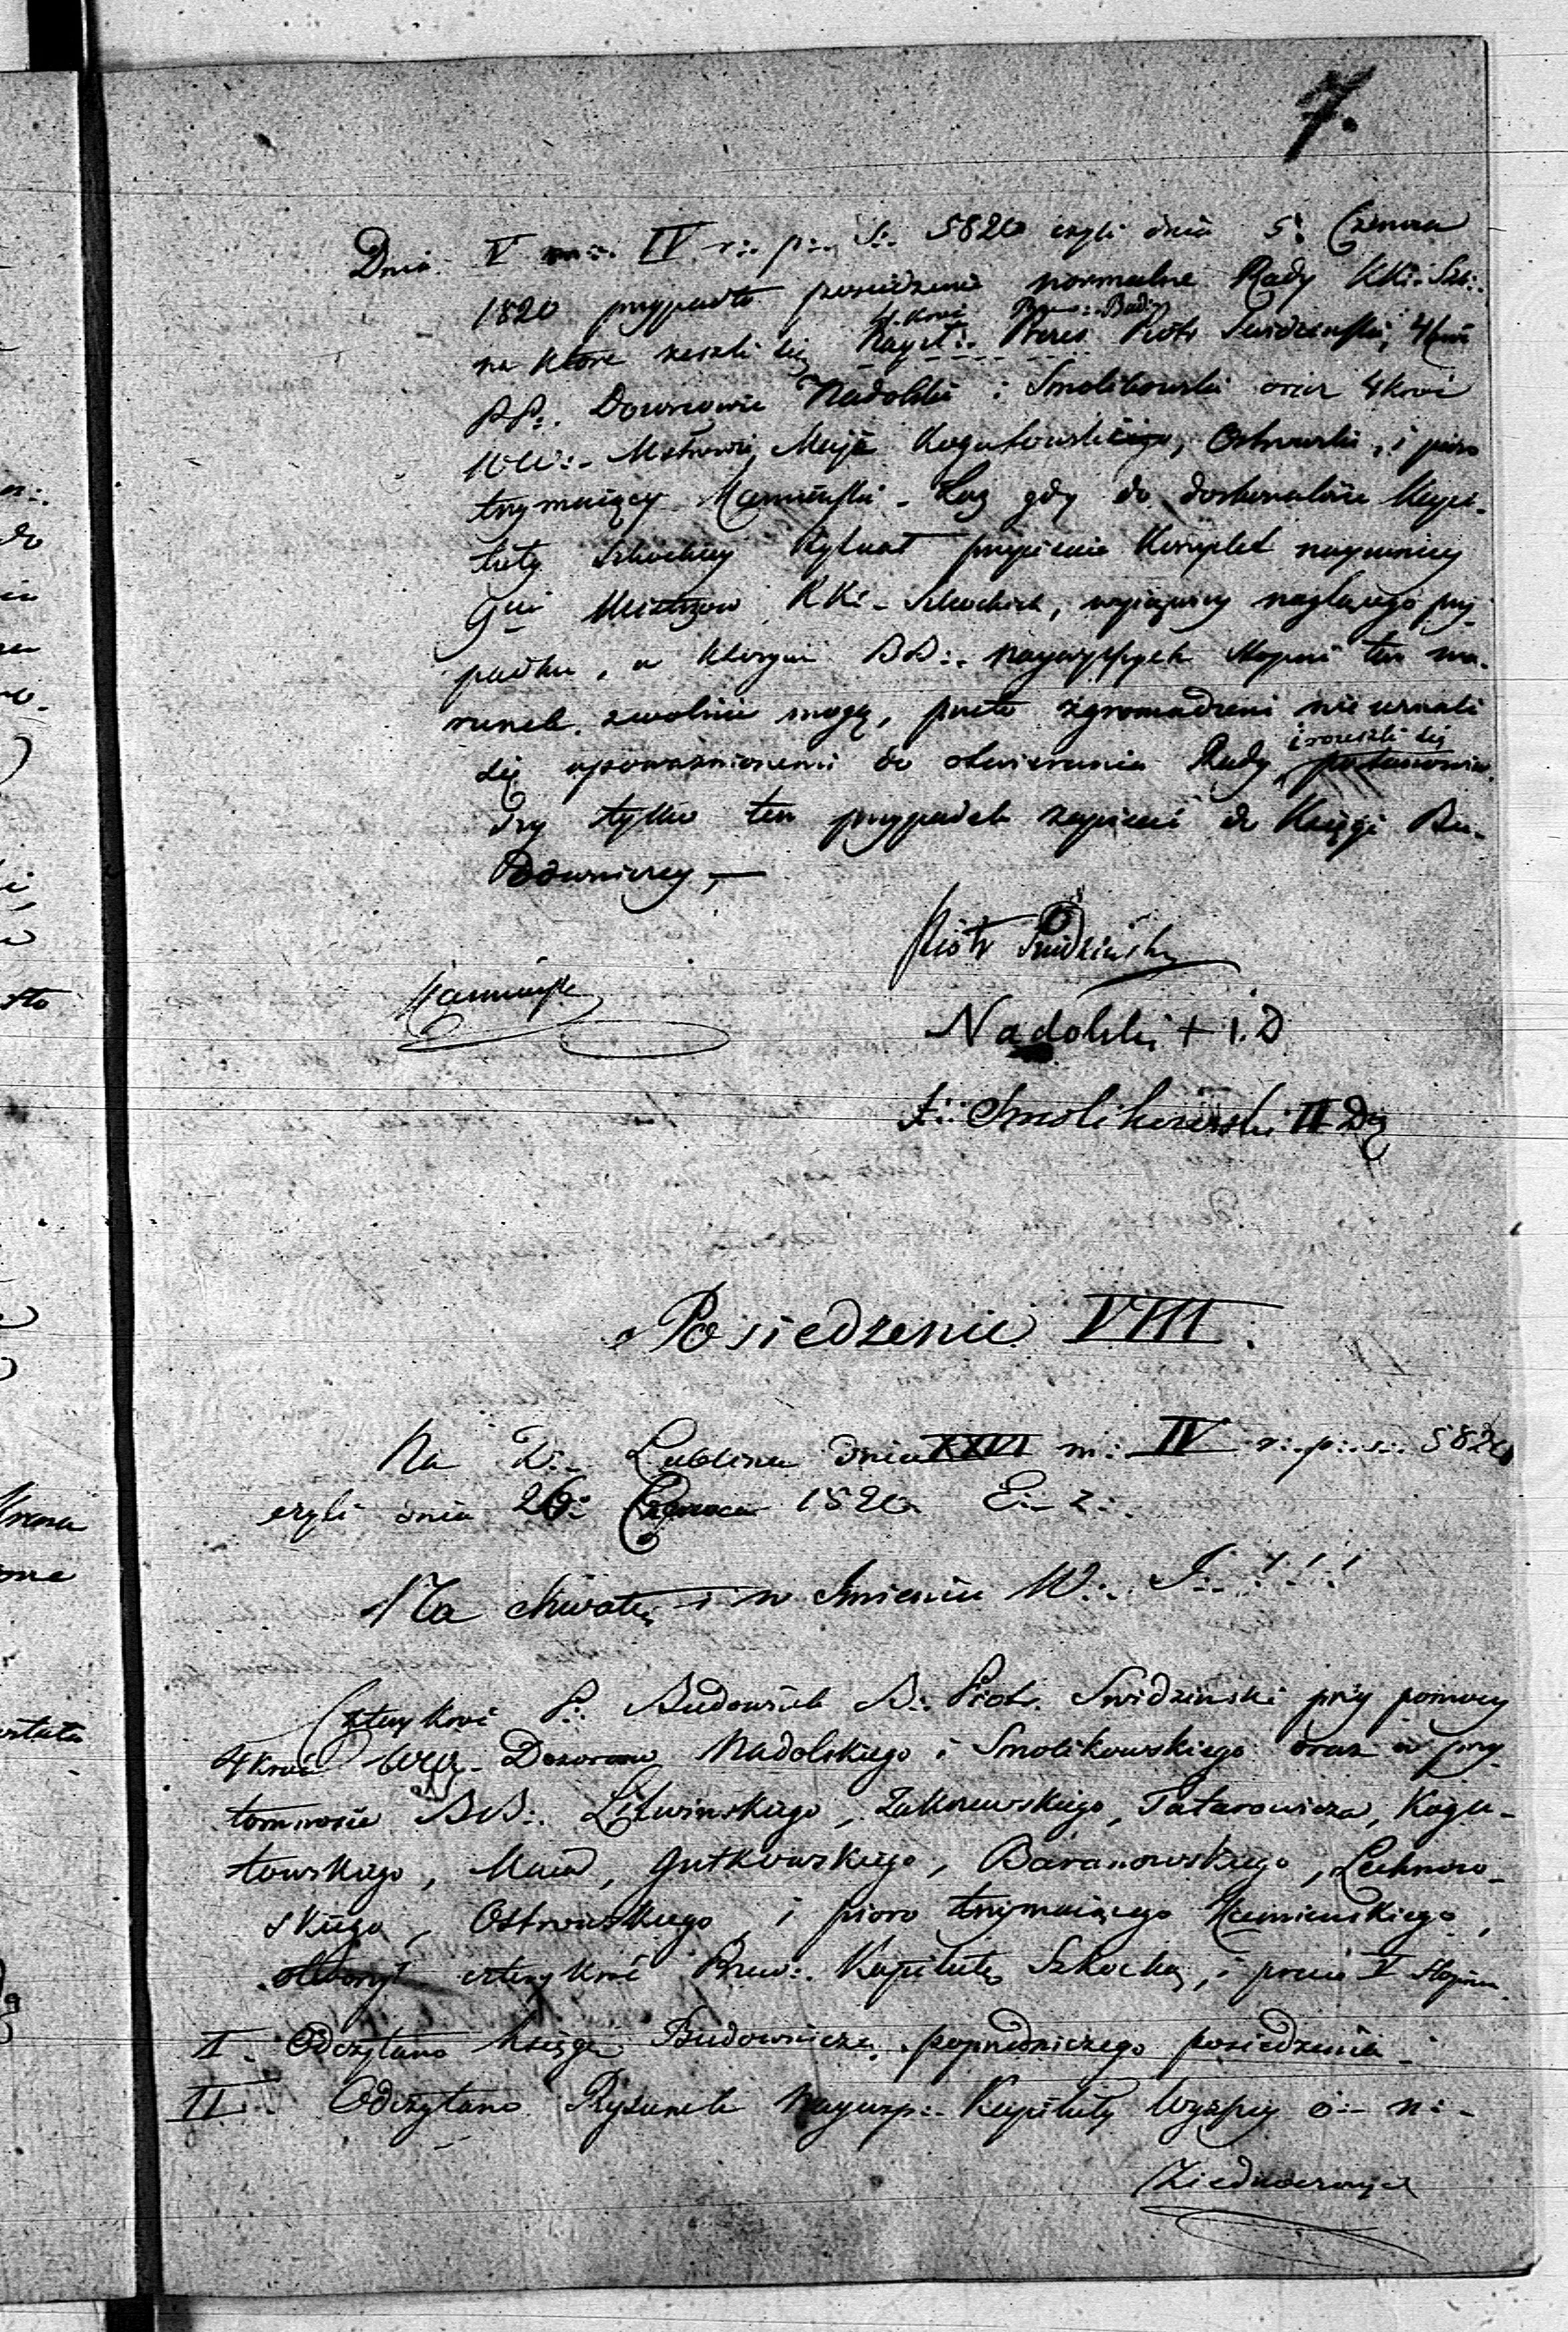 7.
Dnia V m∴ IV r∴ p∴ S∴ 5820 czyli dnia 5. Czerwca
1820 przypadło posiedzenie normalne Rady KKi∴ Szk∴
4.kroć Prze∴ Bud∴
na które zeszli się Kapit∴ Prezes Piotr Świdziński, 4kroć
PP∴ Dozorcowie Nadolski i Smolikowski oraz 4kroć
WW∴ Mstrowie, Maja Kogutowski, Ostrowski, i pioro
trzymaiący Kamieński. Lecz gdy do doskonałości Kapi-
tuły Szkockiey Rytuał przepisuie Komplet naymniey
9ciu Mistrzow KKi Szkockich, wyiąwszy nagłego przy-
padku, w którym BB∴ naywyższych stopni ten wa-
runek zwolnić mogą, przeto zgromadzeni nie uznali
i rozeszli się
się upoważnionemi do otwierania Rady, postanowiw-
szy tylko ten przypadek zapisać do Księgi Bu-
downiczey, —
Piotr Świdziński
Kamieński
Nadolski + 1. D
Smolikowski II Dz
Posiedzenie VIII.
Na W∴ Lublina dnia XXVI m∴ IV r∴ p∴ s∴ 5820
czyli dnia 26∴ Czerwca 1820. E∴ z∴
Na chwałę i w Imieniu W∴ J∴ ! ! !
Czterykroć P∴ Budownik B∴ Piotr Świdziński przy pomocy
4kroć WW∴ Dozorcow Nadolskiego i Smolikowskiego oraz w przy-
tomności BB∴ Litwinskiego, Zakrzewskiego, Tatarowicza, Kogu-
towskiego, Maia, Gutkowskiego, Baranowskiego, Lechnow-
skiego, Ostrowskiego i pioro trzymaiącego Kamienskiego,
otworzył czterykroć Prze∴ Kapitułę Szkocką, i prace V Stopnia.
I∴ Odczytano Księgę Budowniczą poprzedniczego posiedzenia.
II∴ Odczytano Rysunek Naywyż∴ Kapituły Wyższey o∴ n∴
Ziednoczonych